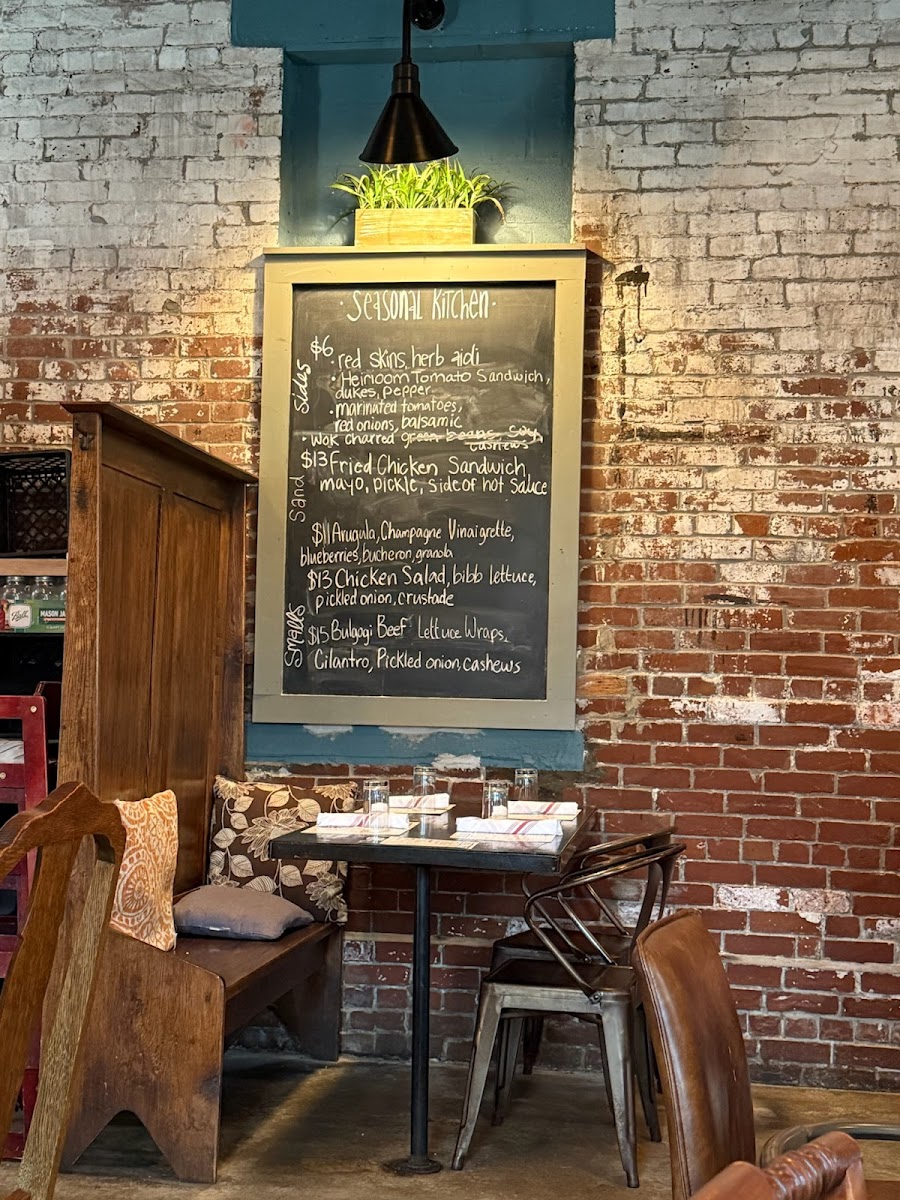 · Seasonal Kitchen ·
Sides
$6
· red skins, herb aioli
· Heirloom Tomato Sandwich,
dukes, pepper
· marinated tomatoes,
red onions, balsamic
· wok charred green beans, soy,
cashews
Sand
$13 Fried Chicken Sandwich,
mayo, pickle, side of hot sauce
Smalls
$11 Arugula, Champagne Vinaigrette,
blueberries, bucheron, granola
$13 Chicken Salad, bibb lettuce,
pickled onion, crustade
$15 Bulgogi Beef Lettuce Wraps,
Cilantro, Pickled onion, cashews
Ball
MASON JAR